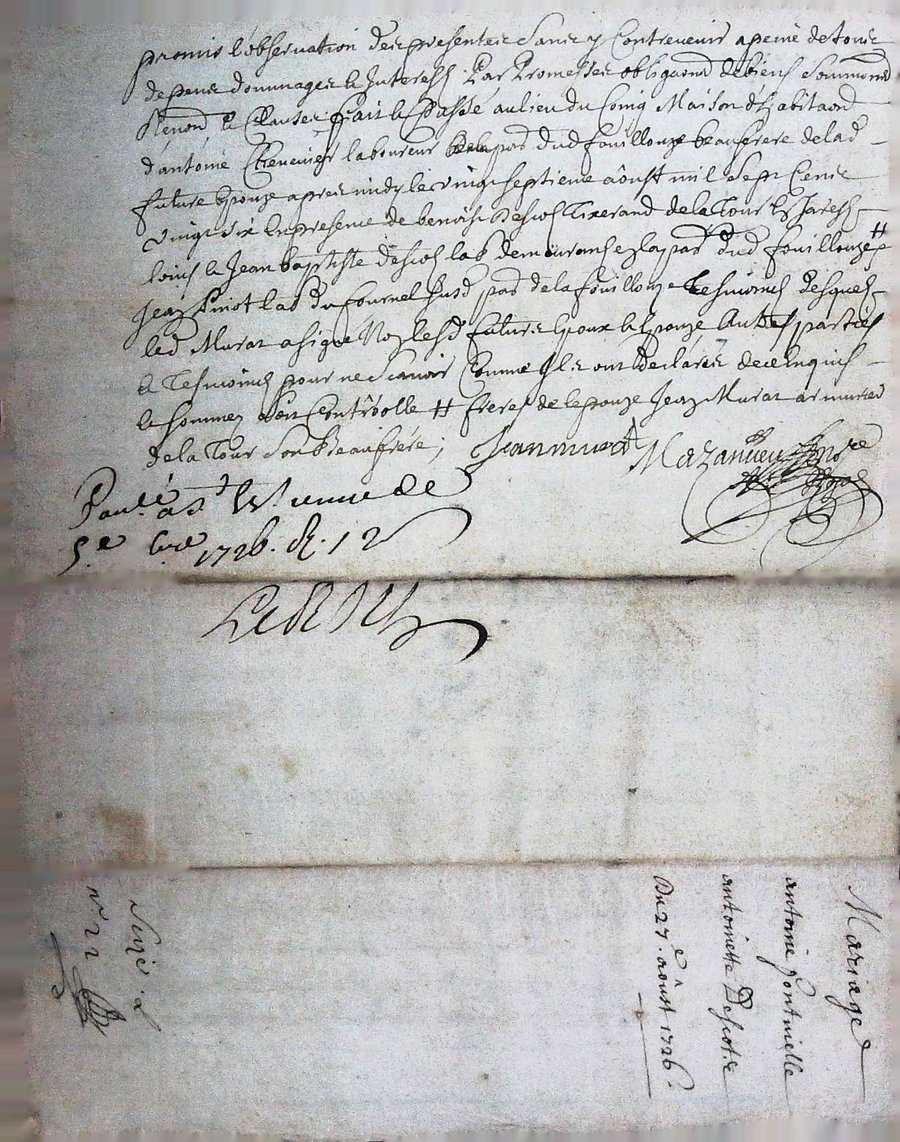 promis l'observation des presentes sans y Contrevenir a peine de tous
despens dommages & Interests Par Promesses obligaons de biens soummons
Renons & Clauses fait & Passé au lieu du Coing Maison d'habitaon
d'antoine Chenevier laboureur parr dud fouillouze beaufrere de lad
future Epouze apres midy le vingt septieme aôust mil sept Cents
vingt six En presence de benoist Tixerand de la Tour En Jarests
Louis & Jean baptiste lab demeurans en la parr dud fouillouze #
Jean lab du fournel susd parr de la fouillouze Tesmoins desquels
led Murat a signé Non lesd futurs Epoux & Epouze Autres parties
& Tesmoins pour ne Scavoir Comme Ils ont Declarés de ce Enquis
& sommez soit Contrôollé # freres de lepouze Jean Murat armurier
de la Tour son beaufrére;
Jean murat
Mazanieu
1726. R. 12
Mariage
antoine
antoinette
Du 27.e aôust 1726.